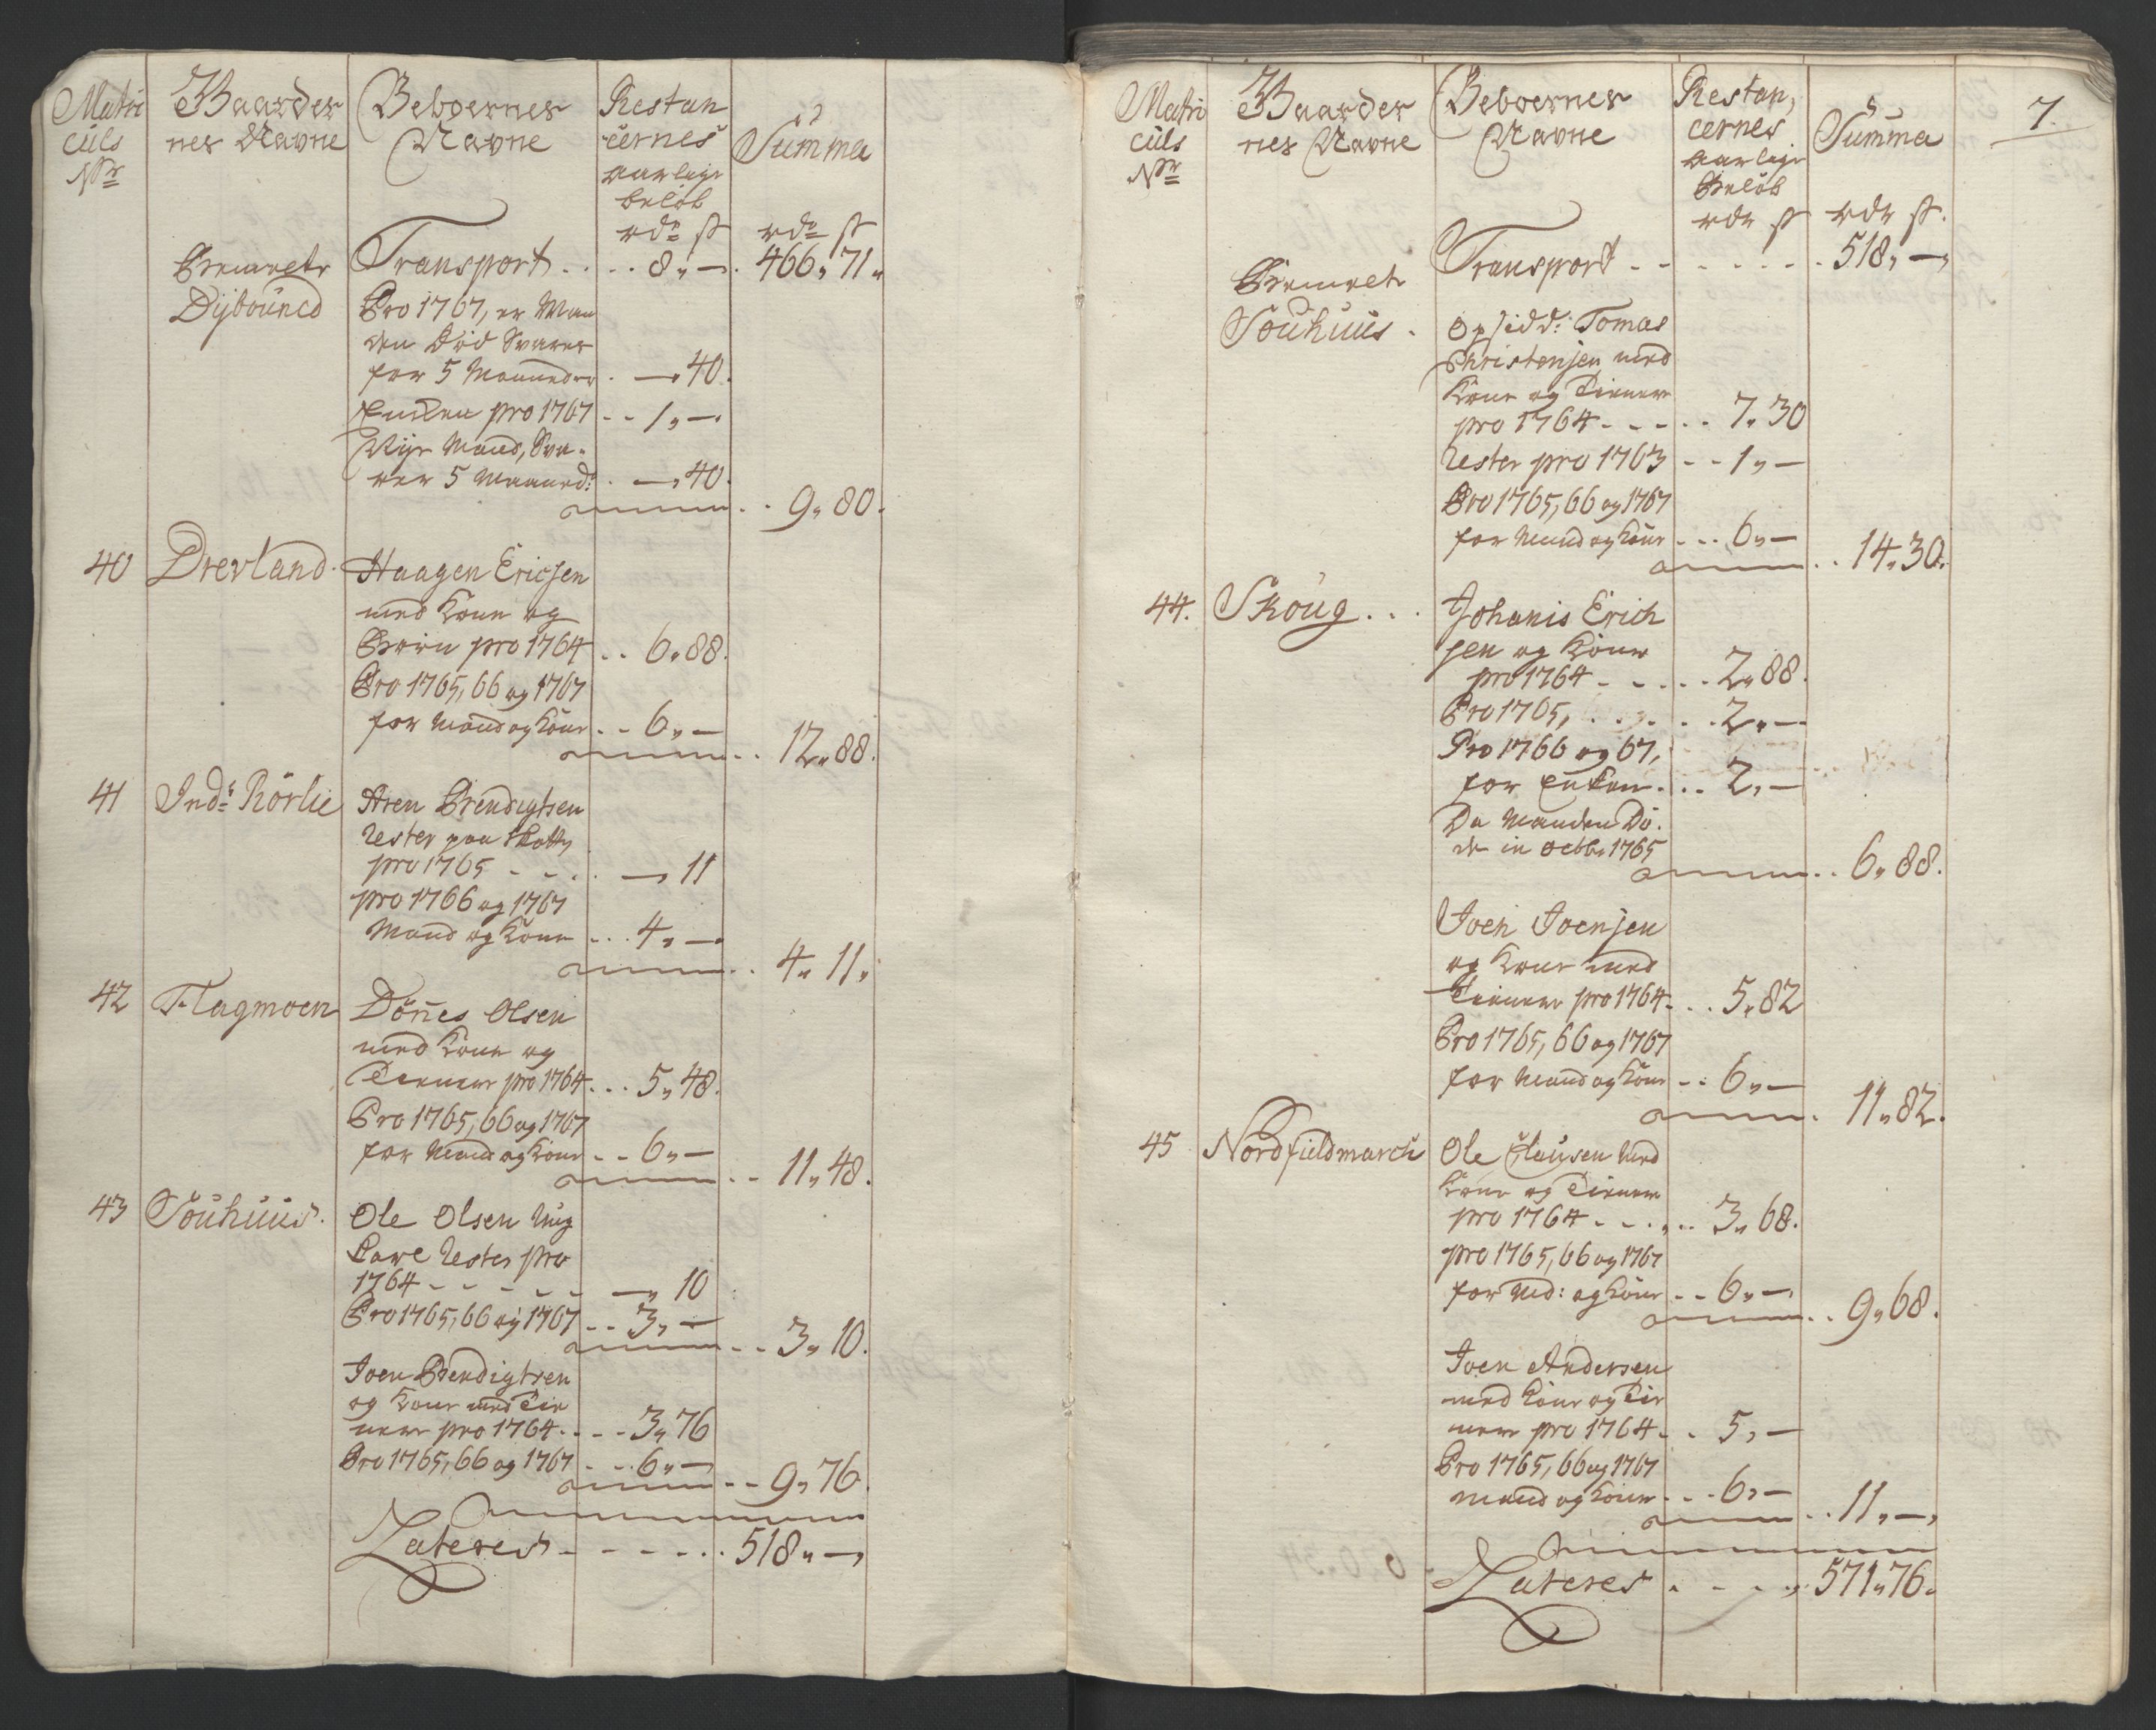 Matri
culs
Nr
Gaarder
nes Navne
Beboernes
Navne
Restan
cernes
aarlige
beløb
rdr ß
Summa
rdr ß
Benævte
Dybouned
Transport . . . . 8 „ — . 466 „ 71 „
Pro 1767, er Man
den Død Svares
for 5 Maaneder . — „ 40.
Enken pro 1767 . . 1 „ —
Nye Mand, Sva-
rer 5 Maaned: . — „ 40.
. . 9 „ 80.
40 Drevland. Haagen Ericsen
med Kone og
Børn pro 1764 . . 6 „ 88.
Pro 1765, 66 og 1767
for Mand og Kone . . 6 „ —
. . 12 „ 88.
41 Indr Rörlie Aren Bendigtsen
Rester paa Skatt
pro 1765 . . . — „ 11
pro 1766 og 1767
Mand og Kone . . . 4 „ —
. . 4 „ 11 „
42 Flagmoen Dönes Olsen
med Kone og
Tienere pro 1764 . . . 5 „ 48.
Pro 1765, 66 og 1767
for Mand og Kone . . 6 „ —
. . 11 „ 48.
43 Souhuus. Ole Olsen Ung
Karl Rester pro
1764 - - - - - — „ 10
Pro 1765, 66 og 1767 . . 3 „ —
. . 3 „ 10.
Joen Bendigtsen
og Kone med Tie
nere pro 1764 . . . . 3 „ 76
Pro 1765, 66 og 1767 . . . 6 „ —
- - 9 „ 76.
Lateres - - - - - . . 518 „ —
7.
Matri
culs
Nr
Gaarder
nes Navne
Beboernes
Navne
Restan,
cernes
aarlige
Beløb
rdr ß
Summa
rdr ß.
Benævte
Souhuus .
Transport - - - - - - - . 518 „ —
Opsidd: Tomas
Christensen med
Kone og Tienere
pro 1764 - - - . . 7 „ 30
Rester pro 1763 - - 1 „ —
Pro 1765, 66 og 1767
for Mand og Kone . . . 6 „ —
. . 14 „ 30.
44. Skoug . . . Johanis Erich
sen og Kone
pro 1764 - - - . . 2 „ 88.
Pro 1765, . . . . . . 2 „ —
Pro 1766 og 67,
for Enken . . . 2 „ —
Da Manden Dö-
de in octbr 1765
. . 6 „ 88.
Joen Joensen
og Kone med
Tienere pro 1764 . . . 5 „ 82
Pro 1765, 66 og 1767
for Mand og Kone - - 6 „ —
. 11 „ 82.
45 Nordfieldmarch Ole Clausen Med
Kone og Tienere
pro 1764 - - - . . 3 „ 68.
pro 1765, 66 og 1767
for Md: og Kone - - 6 „ —
. . 9 „ 68.
Joen Andersen
med Kone og Tie
nere pro 1764 - . 5 „ —
Pro 1765, 66 og 1767
mand og Kone . . . 6 „ —
. . 11 „ —
Lateres . - - - „ 571 „ 76.